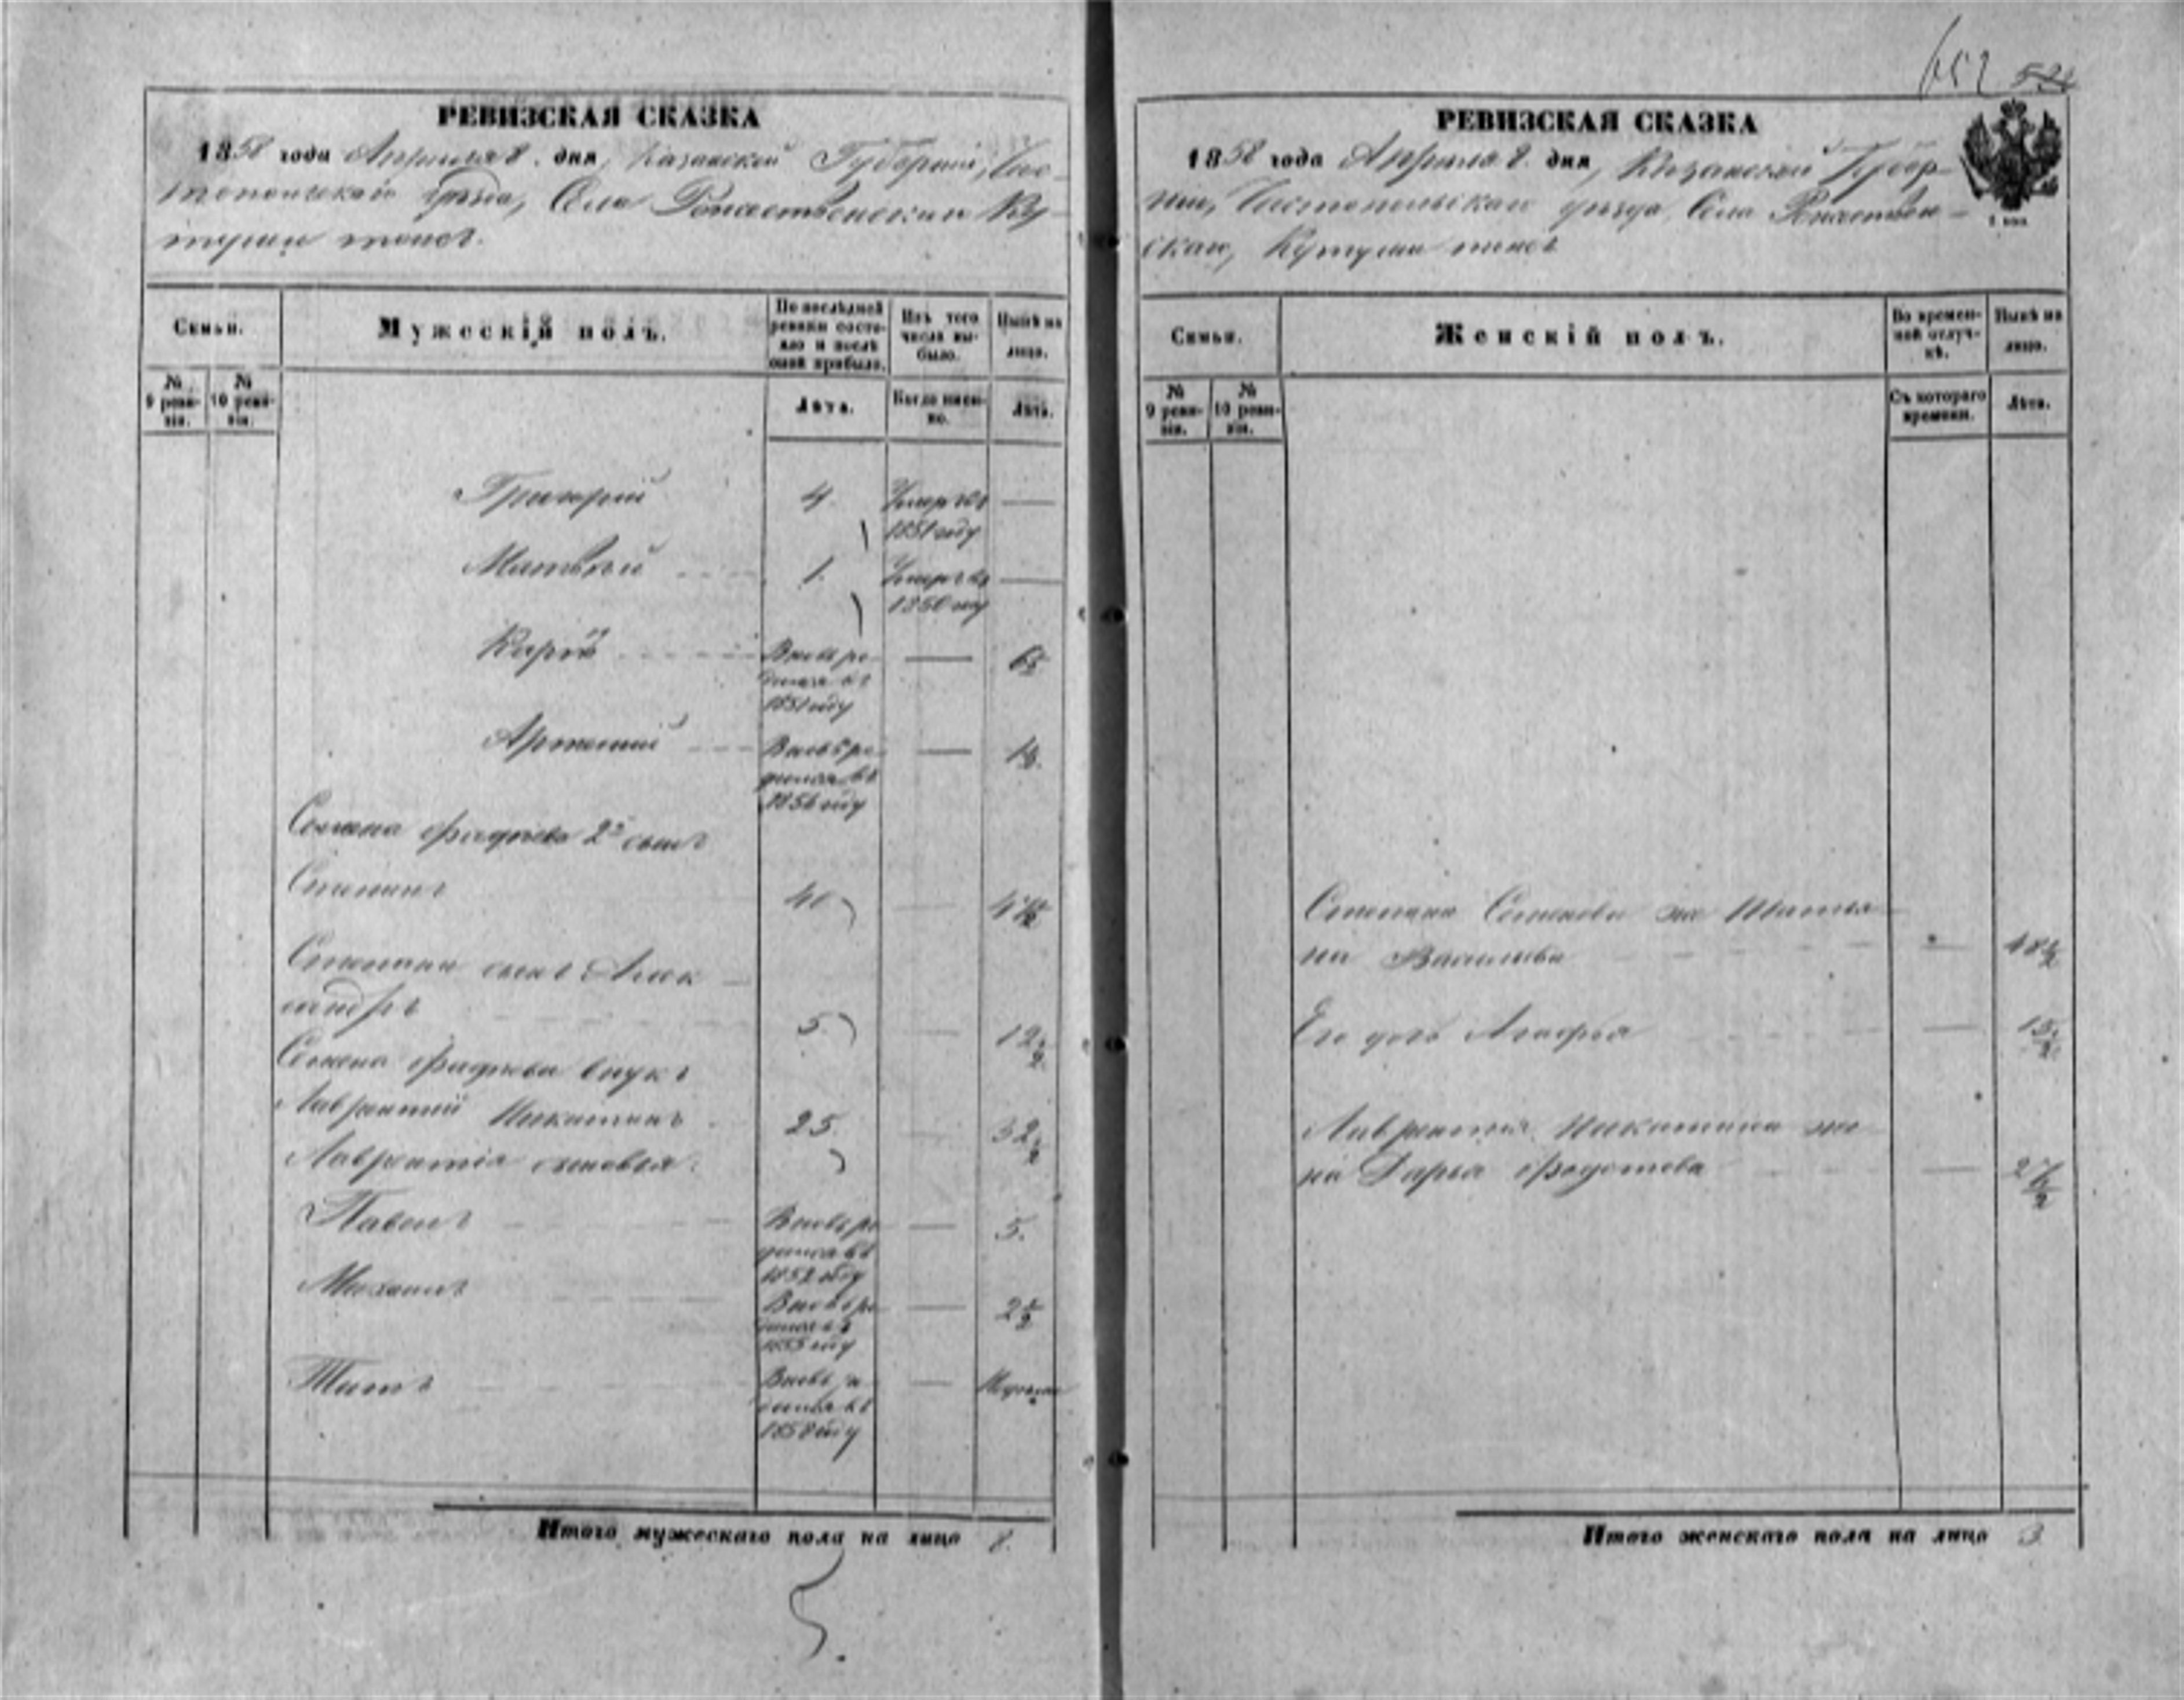 652 521
РЕВИЗСКАЯ СКАЗКА
1858 года Апреля 8. дня, Казанской Губерніи, Чис-
топольскаго уѣзда, Села Рожественскаго Ку-
тушъ тожъ.
Семьи.
Мужескій полъ.
По послѣдней ревизіи состояло и послѣ оной прибыло.
Изъ того числа выбыло.
Нынѣ на лицо.
№ 9 ревизіи.
№ 10 ревизіи.
Лѣта.
Когда именно.
Лѣта.
Григорій 4 Умеръ въ
1851 году
Матвѣй 1. Умеръ въ
1850 году
Вновь ро-
дился въ 6½
1851 году
Артемій Вновь ро-
дился въ 1½.
1856 году
Семена Фадѣева 2й сынъ
Степанъ 40 47½
Степана сынъ Алек-
сандръ 5. 12½
Семена Фадѣева внукъ
Лаврентій Никитинъ 25. 32½
Лаврентія сыновья:
Павелъ Вновь ро- 5.
дился въ
1852 году
Михаилъ Вновь ро- 2½
дился въ
1855 году
Титъ Вновь ро- Недѣля
дился въ
1858 году
Итого мужескаго пола на лицо 8.
РЕВИЗСКАЯ СКАЗКА
1858 года Апреля 8. дня, Казанской Губер-
ніи, Чистопольскаго уѣзда, Села Рожествен-
скаго, Кутушъ тожъ
Семьи.
Женскій полъ.
Во временной отлучкѣ.
Нынѣ на лицо.
№ 9 ревизіи.
№ 10 ревизіи.
Съ котораго времени.
Лѣта.
Степана Семенова же Татья-
на Васильева 48½
Его дочь Агафья 15½
Лаврентія Никитина же-
на Дарья Федотова 27½
Итого женскаго пола на лицо 3